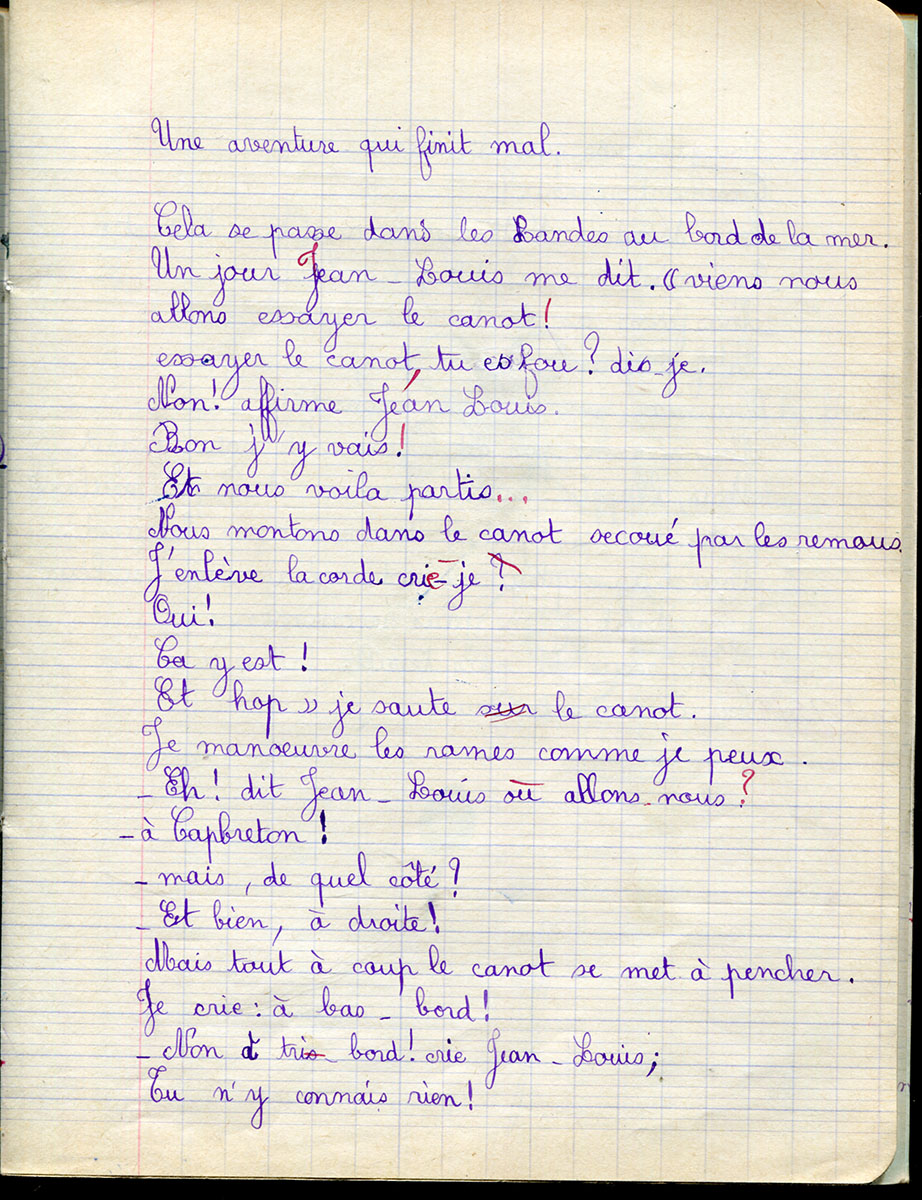 Une aventure qui finit mal.
Cela se passe dans les Landes au bord de la mer.
Un jour Jean - Louis me dit. « viens nous
allons essayer le canot !
essayer le canot, tu es fou ? dis-je.
Non ! affirme Jean Louis.
Bon j'y vais !
Et nous voila partis...
Nous montons dans le canot secoué par les remous.
J'enlève la corde crie-je ?
Oui !
Ca y est !
Et hop » je saute sur le canot.
Je manoeuvre les rames comme je peux.
- Eh ! dit Jean - Louis où allons-nous ?
- à Capbreton !
- mais, de quel côté ?
- Et bien, à droite !
Mais tout à coup le canot se met à pencher.
Je crie : à bas - bord !
- Non à tris bord ! crie Jean - Louis ;
Tu n'y connais rien !